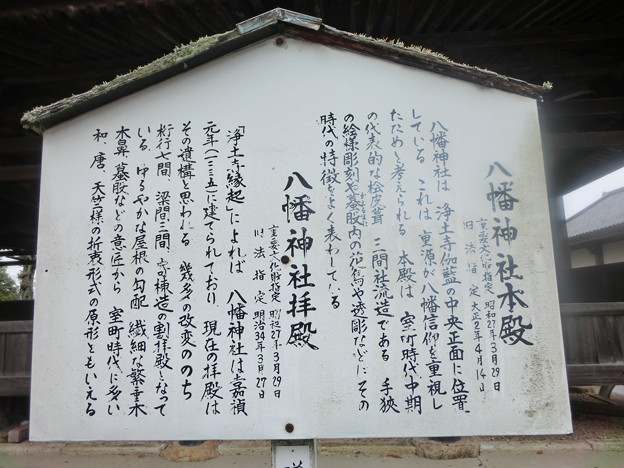 八幡神社本殿
重要文化財指定 昭和27年3月29日
旧法指定 大正2年4月14日
八幡神社は、浄土寺伽藍の中央正面に位置
している。これは、重源が八幡信仰を重視し
たためと考えられる。本殿は、室町時代中期
の代表的な桧皮葺、三間社流造である。手挾
の絵様彫刻や蟇股内の花鳥や透彫などにその
時代の特徴をよく表わしている。
八幡神社拝殿
重要文化財指定 昭和27年3月29日
旧法指定 明治34年3月27日
「浄土寺縁起」によれば、八幡神社は嘉禎
元年(一二三五)に建てられており、現在の拝殿は
その遺構と思われる。幾多の改変ののち
桁行七間、梁間三間、寄棟造の割拝殿となって
いる。ゆるやかな屋根の勾配、繊細な繁垂木
木鼻、蟇股などの意匠から、室町時代に多い
和、唐、天竺様の折衷形式の原形ともいえる